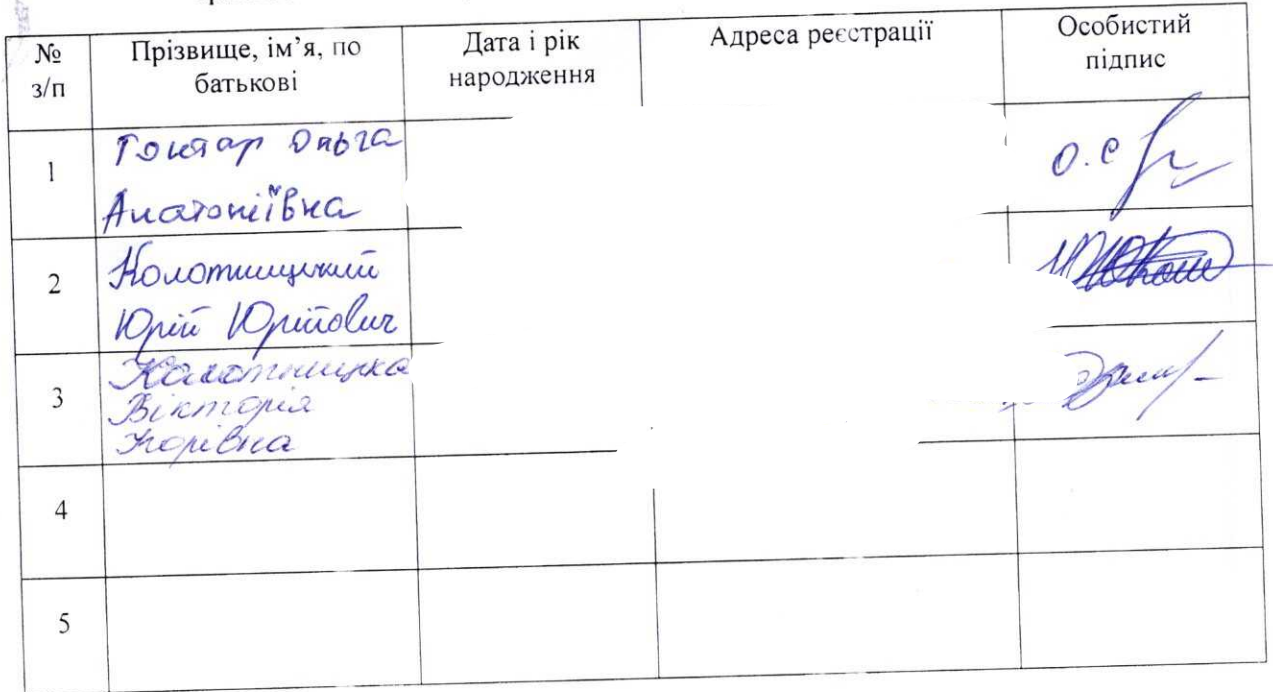 № з/п
Прізвище, ім’я, по батькові
Дата і рік народження
Адреса реєстрації
Особистий підпис
1
Гонтар Ольга
Анатоліївна
2
Колотницький
Юрій Юрійович
3
Колотницька
Вікторія
Ігорівна
4
5